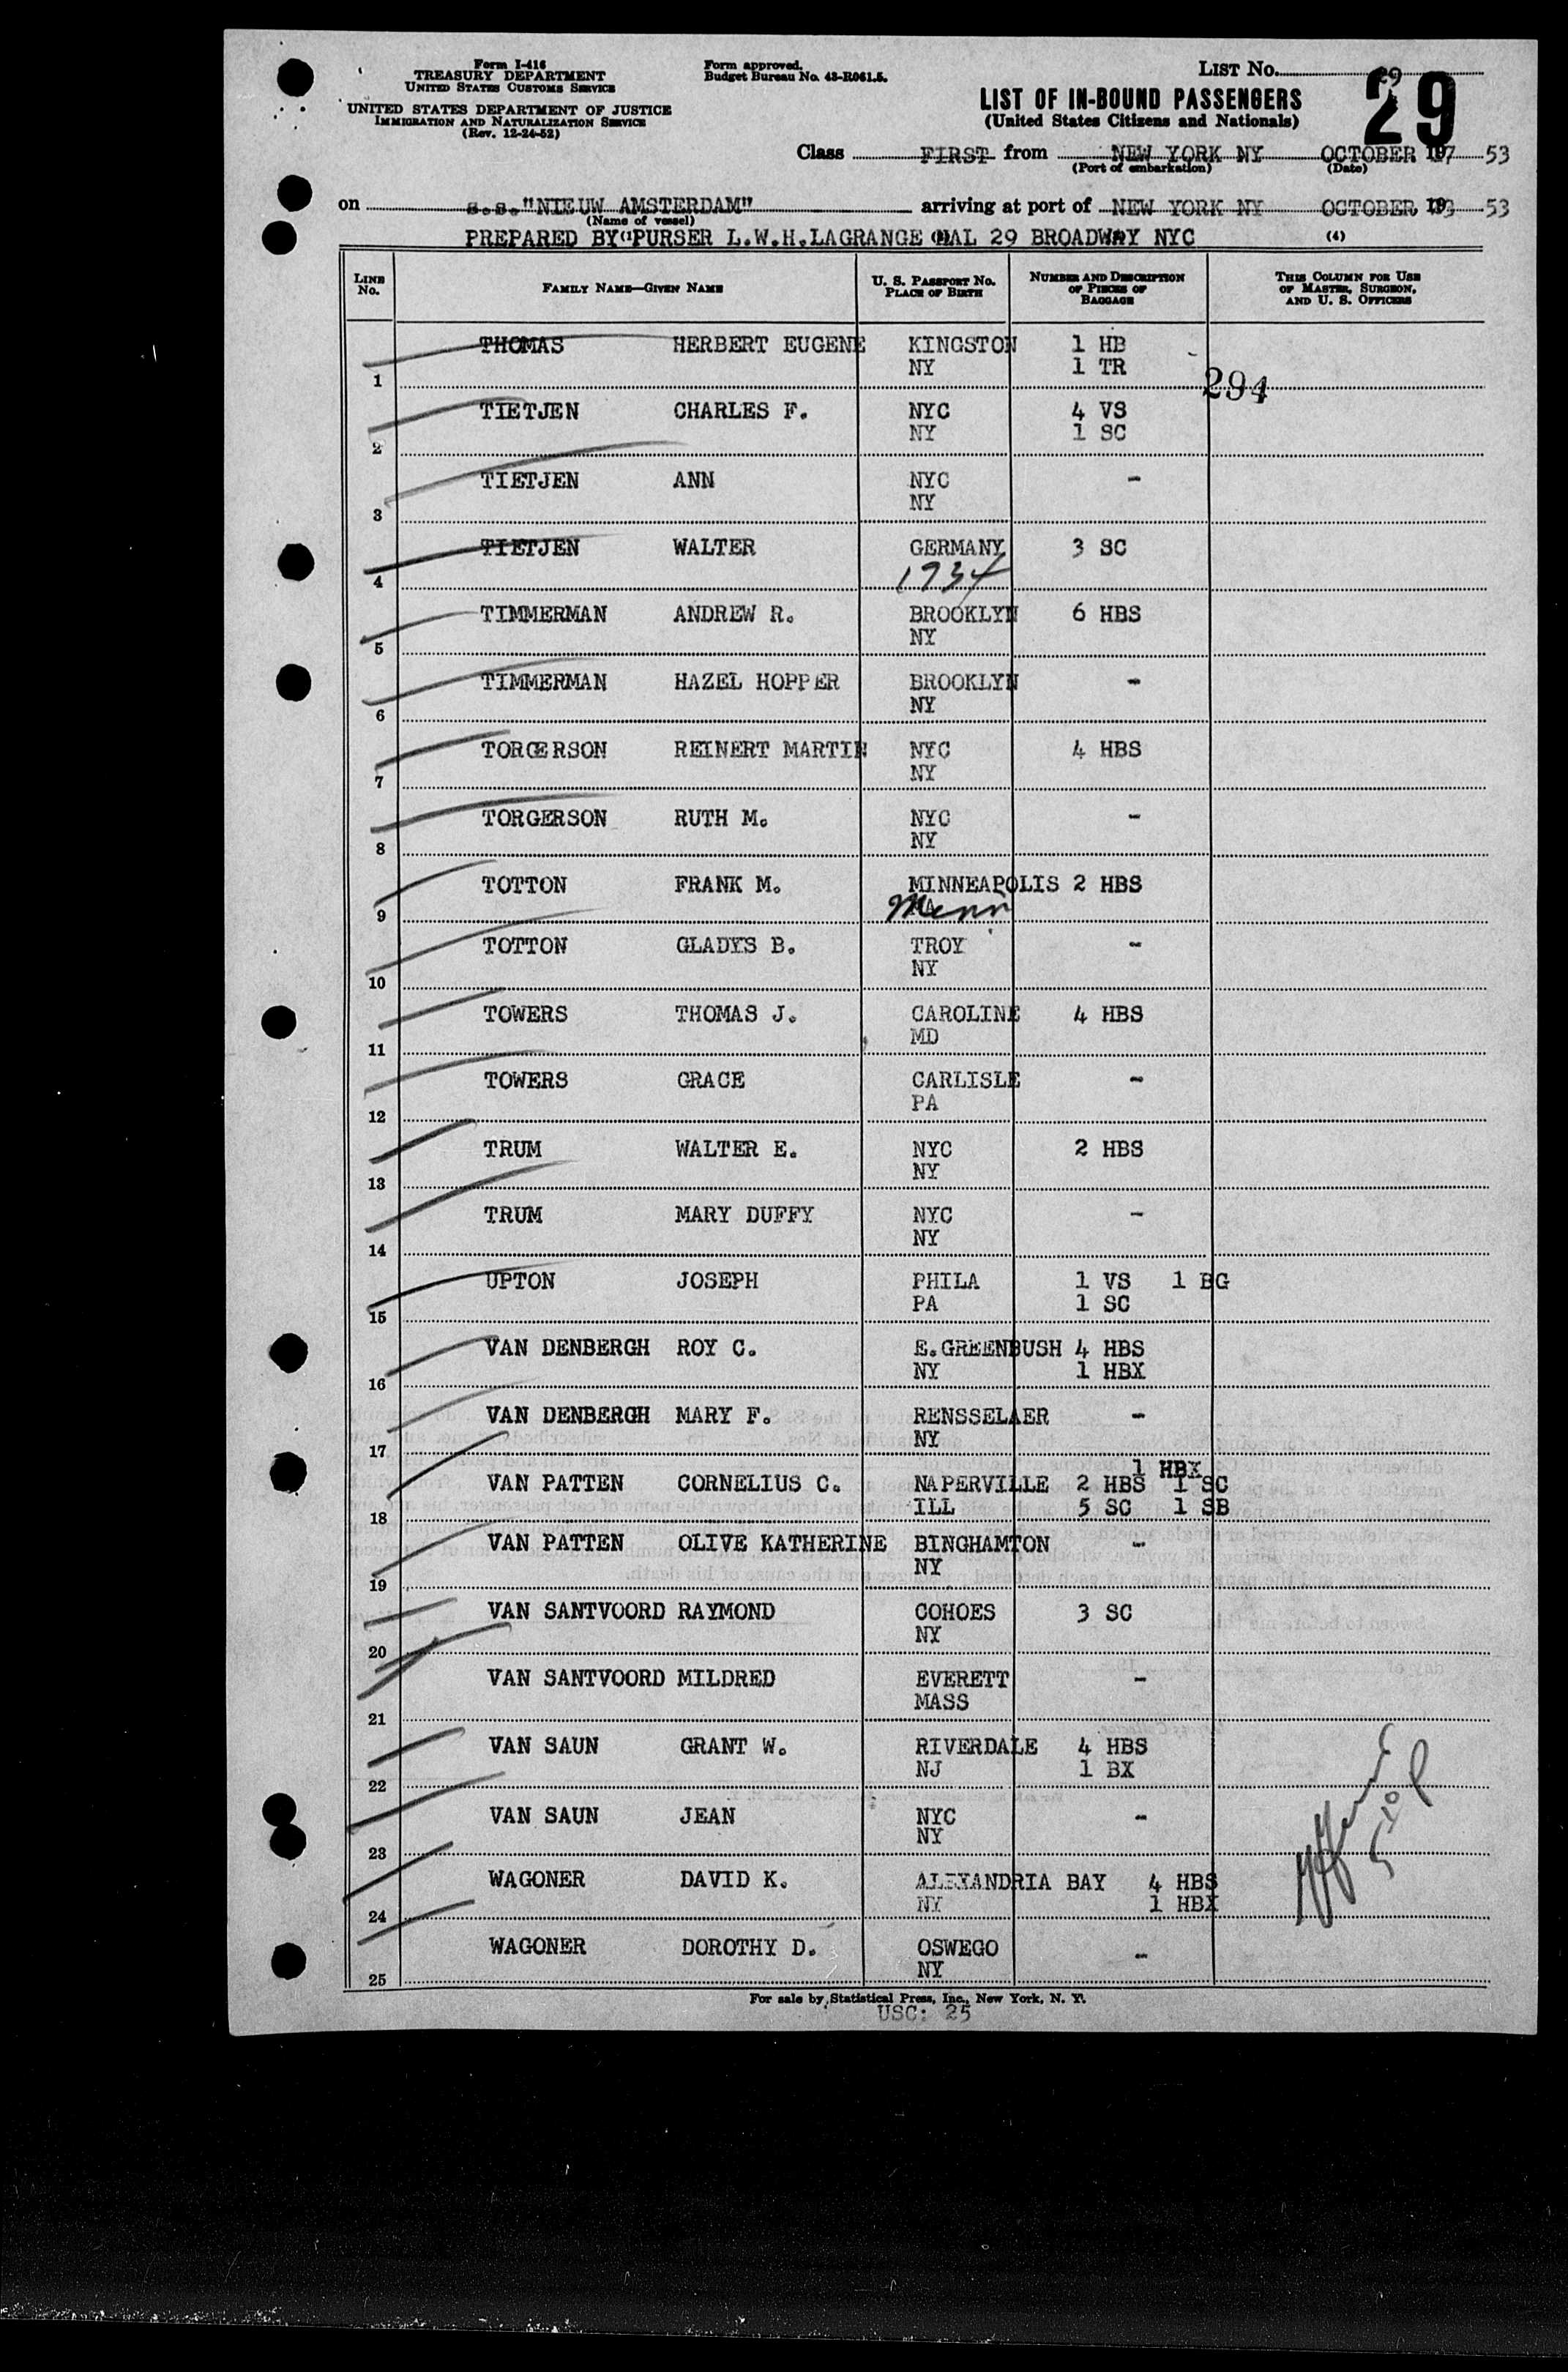 Form I-416
TREASURY DEPARTMENT
UNITED STATES CUSTOMS SERVICE
UNITED STATES DEPARTMENT OF JUSTICE
IMMIGRATION AND NATURALIZATION SERVICE
(Rev. 12-24-52)
Form approved.
Budget Bureau No. 43-R061.5.
LIST No. 29
29
LIST OF IN-BOUND PASSENGERS
(United States Citizens and Nationals)
Class FIRST from NEW YORK NY OCTOBER 7 1953
(Port of embarkation) (Date)
on s.s."NIEUW AMSTERDAM" arriving at port of NEW YORK NY OCTOBER 19 53
(Name of vessel)
PREPARED BY PURSER L.W.H.LAGRANGE HAL 29 BROADWAY NYC (4)
LINE No. FAMILY NAME—GIVEN NAME U. S. PASSPORT NO. PLACE OF BIRTH NUMBER AND DESCRIPTION OF PIECES OF BAGGAGE THIS COLUMN FOR USE OF MASTER, SURGEON, AND U. S. OFFICERS
THOMAS HERBERT EUGENE KINGSTON 1 HB
1 NY 1 TR 294
TIETJEN CHARLES F. NYC 4 VS
2 NY 1 SC
TIETJEN ANN NYC -
3 NY
TIETJEN WALTER GERMANY 3 SC
4 1934
TIMMERMAN ANDREW R. BROOKLYN 6 HBS
5 NY
TIMMERMAN HAZEL HOPPER BROOKLYN -
6 NY
TORGERSON REINERT MARTIN NYC 4 HBS
7 NY
TORGERSON RUTH M. NYC -
8 NY
TOTTON FRANK M. MINNEAPOLIS 2 HBS
9 Minn
TOTTON GLADYS B. TROY -
10 NY
TOWERS THOMAS J. CAROLINE 4 HBS
11 MD
TOWERS GRACE CARLISLE -
12 PA
TRUM WALTER E. NYC 2 HBS
13 NY
TRUM MARY DUFFY NYC -
14 NY
UPTON JOSEPH PHILA 1 VS 1 BG
15 PA 1 SC
VAN DENBERGH ROY C. E.GREENBUSH 4 HBS
16 NY 1 HBX
VAN DENBERGH MARY F. RENSSELAER -
17 NY
1 HBX
VAN PATTEN CORNELIUS C. NAPERVILLE 2 HBS 1 SC
18 ILL 5 SC 1 SB
VAN PATTEN OLIVE KATHERINE BINGHAMTON -
19 NY
VAN SANTVOORD RAYMOND COHOES 3 SC
20 NY
VAN SANTVOORD MILDRED EVERETT -
21 MASS
VAN SAUN GRANT W. RIVERDALE 4 HBS
22 NJ 1 BX
VAN SAUN JEAN NYC -
23 NY
WAGONER DAVID K. ALEXANDRIA BAY 4 HBS
24 NY 1 HBX
WAGONER DOROTHY D. OSWEGO -
25 NY
For sale by Statistical Press, Inc., New York, N. Y.
USC: 25